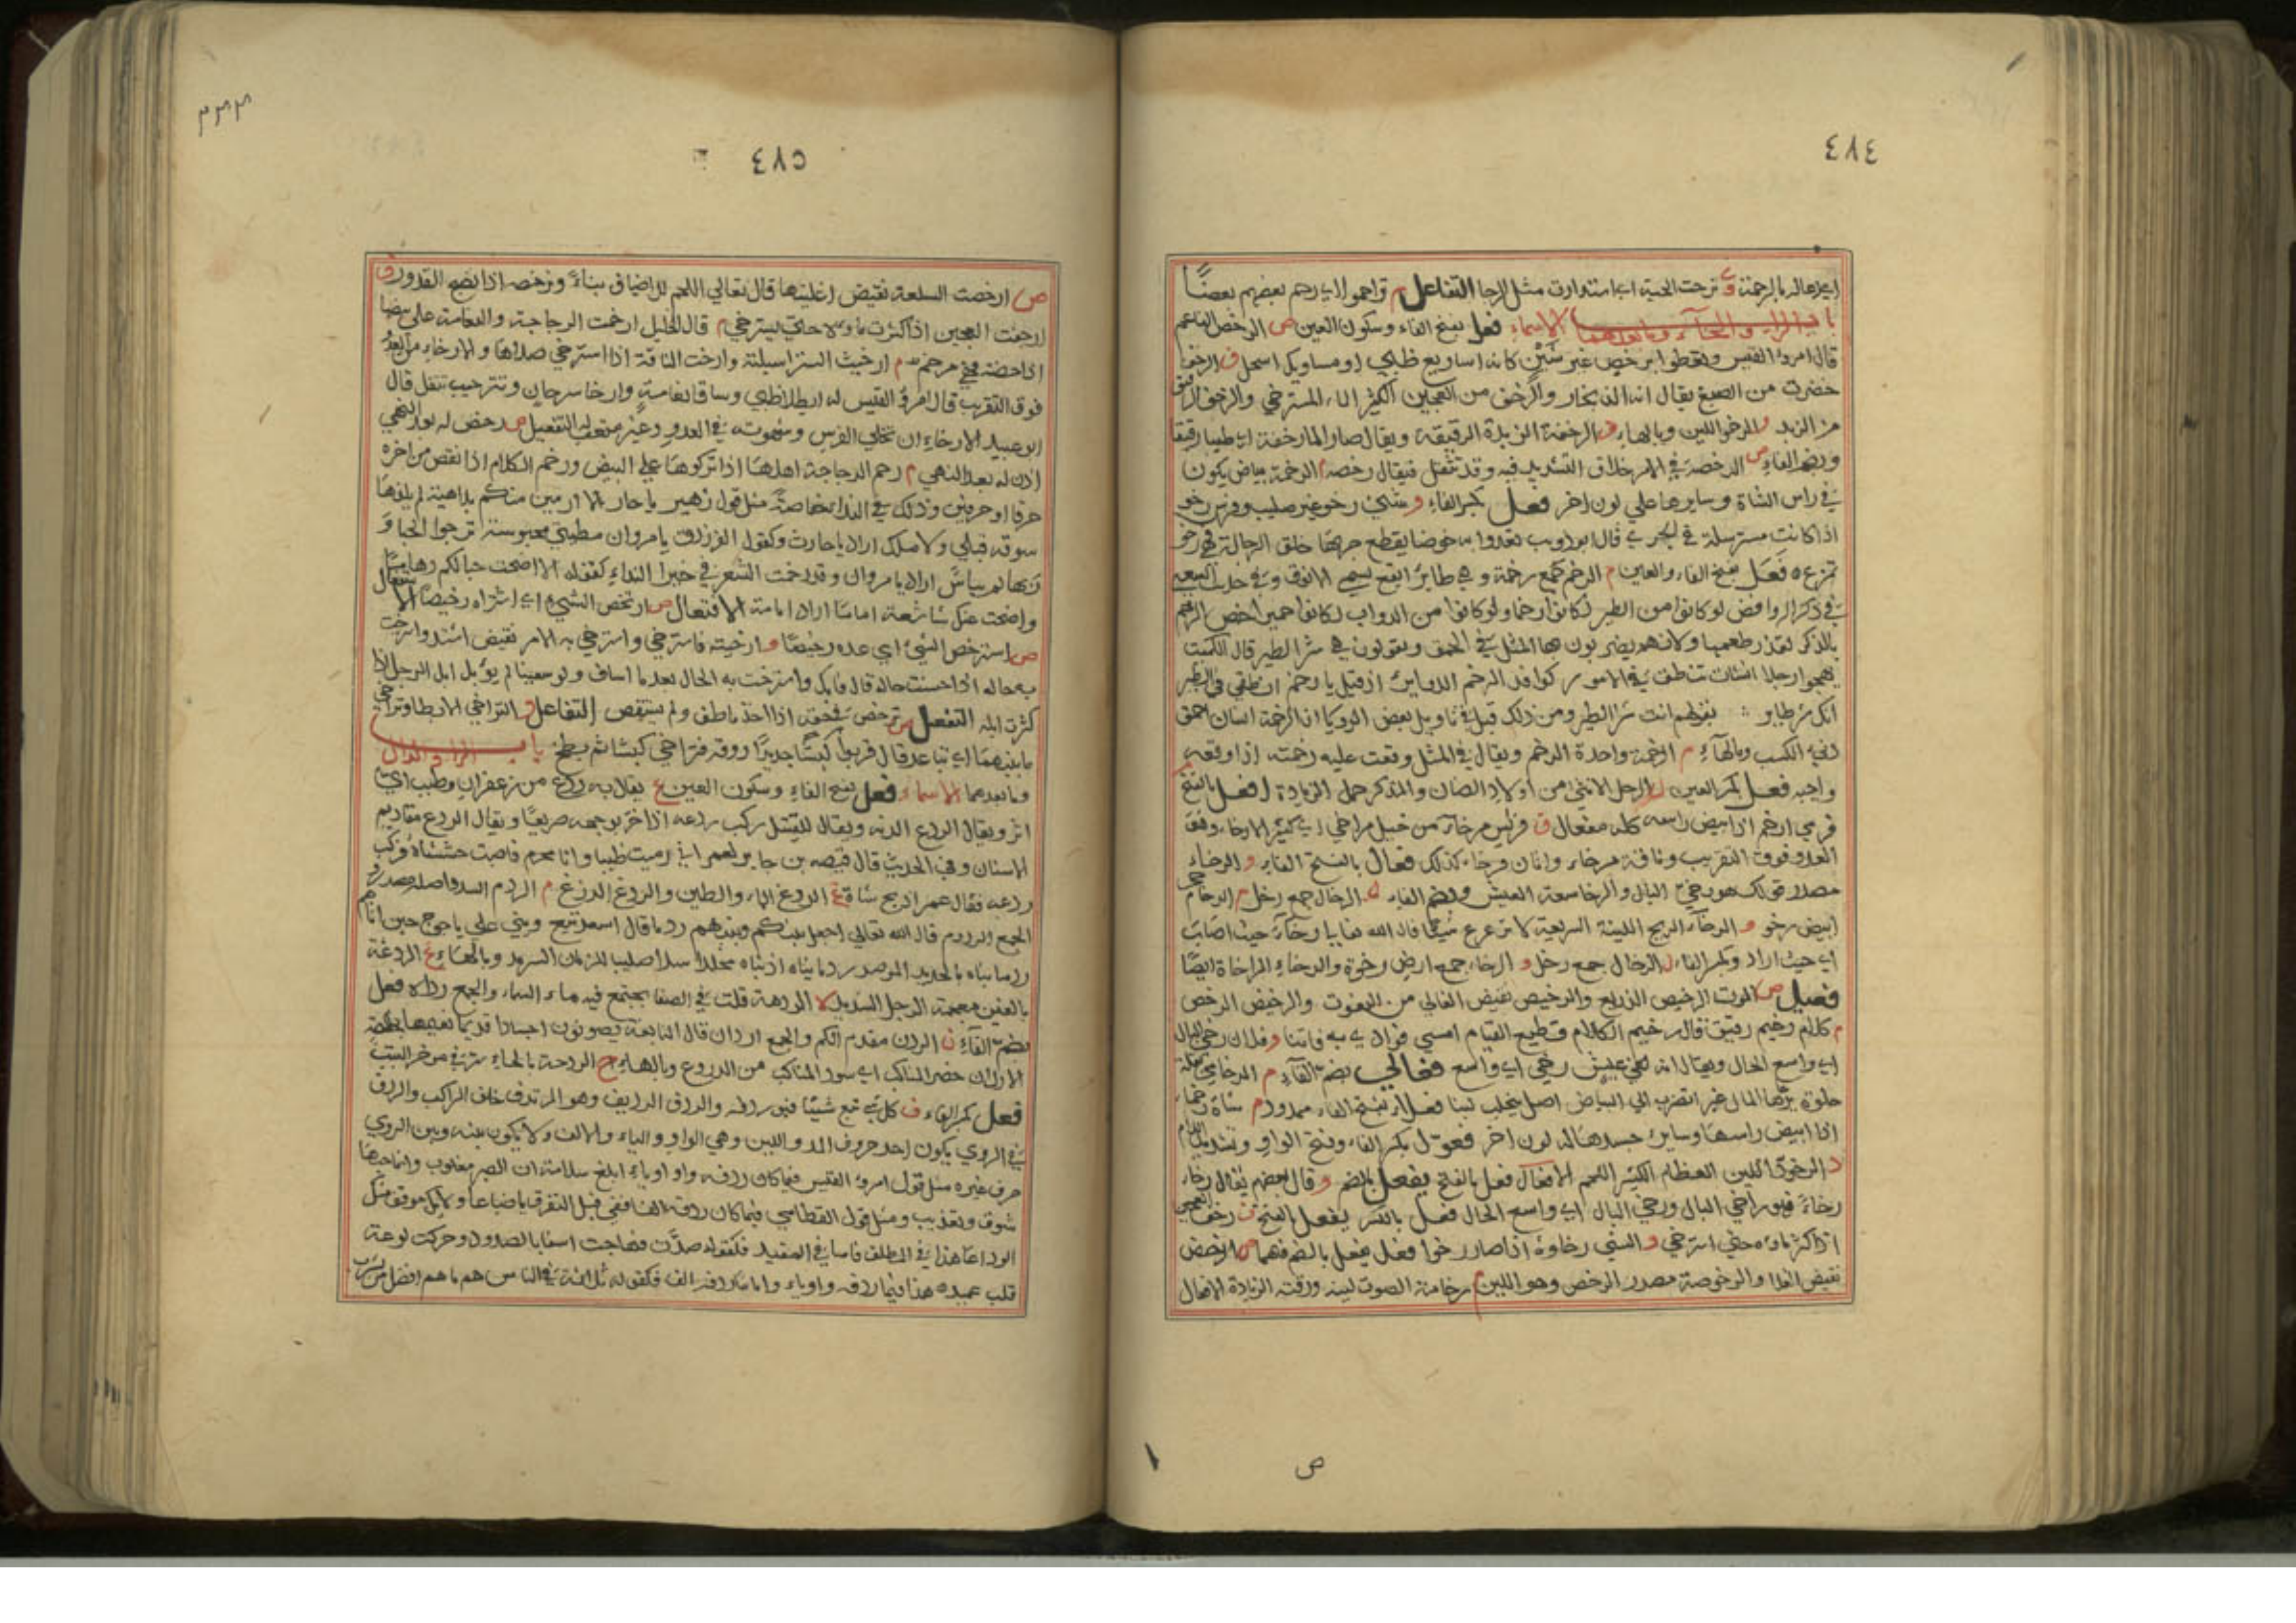 ٤٨٤
اي دعا له بالرحمة ي ترحت الحية اي استدارت مثل الرحا التفاعل م تراحموا اي رحم بعضهم بعضًا
باب الراء والخاء وما بعدهما الاسماء فعل بفتح الفاء وسكون العين ص الرخص الناعم
قال امرؤ القيس وتعطوا برخص غير شثن كانه اساريع ظبي او مساويك اسحل ف الرخف
حضرت من الصبغ يقال انه الف بخار والرخف من العجين الكثير الماء المسترخي والرخف الرقيق
من الزبد و الرخو اللين وبالهاء ف الرخفة الزبدة الرقيقة ويقال صار الماء رخفة اي طينا رقيقا
وبضم الفاء ص الرخصة في الامر خلاف التشديد فيه وقد تثقل فيقال رخصه م الرخمة بياض يكون
في راس الشاة وسايرها على لون اخر فعل بكسر الفاء و شئ رخو غير صليب وفرس رخو
اذا كانت مسترسلة في الجري قال ابو ذويب تعدوا به خوضا يقطع جريها حلق الرحالة فهي رخو
تمزع ٥ فَعَل بفتح الفاء والعين م الرخم جمع رخمة وهي طاير ابقع يسمى الانوق وفي حديث الشعبي
في ذكر الروافض لو كانوا من الطير لكانوا رخما ولو كانوا من الدواب لكانوا حميرا خص الرخم
بالذكر لقذر طعمها ولانهم يضربون بها المثل في الحمق ويقولون هي شر الطير قال الكميت
يهجوا رجلا انشات تنطق في الامور كوافد الرخم الدواير اذ قيل يا رخم انطقي في الطير
انك شر طاير بقولهم انت شر الطير ومن ذلك قيل في تاويل بعض الرويا ان الرخمة انسان احمق
دني الكسب وبالهاء م الرخمة واحدة الرخم ويقال في المثل وقعت عليه رخمته اذا وقعه
واحبه فعل بكسر العين ل الرخل الانثى من اولاد الضان والمذكر حمل الزيادة افعل بالفتح م
فرس ارخم اذا ابيض راسه كله مفعال و فرس مرخاء من خيل مراخي اي كثير الارخاء وهو
العدو فوق التقريب وناقة مرخاء واتان مرخاء كذلك فعال بالفتح الفاء و الرخاء
مصدر قولك هو رخي البال والرخا سعة العيش وبضم الفاء ل الرخال جمع رخل م الرخام حجر
ابيض رخو و الرخاء الريح اللينة السريعة لا تزعزع شيئا قال الله تعالى رخاء حيث اصاب
اي حيث اراد وبكسر الفاء ل الرخال جمع رخل و الرخاء جمع ارض رخوة والرخاء المراخاة ايضا
فعيل ص الموت الرخيص الذريع والرخيص نقيض الغالي من النعوت والرخيص الرخص
م كلام رخيم رقيق قال رخيم الكلام قطيع القيام امسى فوادي به فاتنا و فلان رخي البال
اي واسع الحال ويقال انه لفي عيش رخي اي واسع فعالى بضم الفاء م الرخامى بقلة
حلوة برتها المال غبر تضرب الى البياض اصل يحلب لبنا فعلاء بفتح الفاء ممدود م شاة رخماء
اذا ابيض راسها وساير جسدها له لون اخر فعول بكسر الفاء وفتح الواو وتشديد اللام
د الرخود اللين العظام الكثير اللحم الافعال فعل بالفتح يفعل بالضم و قال بعضهم يقال رخا
رخاءً فهو راخي البال ورخي البال اي واسع الحال فعل بالكسر يفعل بالفتح ف رخف العجين
اذا كثر ماوه حتى استرخى و الشي رخاوة اذا صار رخوا فعل يفعل بالضم فيهما ص الرخص
نقيض الغلا والرخوصة مصدر الرخص وهو اللين م رخامة الصوت لينه ورقته الزيادة الافعال
ص
٤٨٥
٣٣٣
ص ارخصت السلعة نقيض اغليتها قال نغالي اللحم للاضياف نياءً ونرخصه اذا نضج القدور ف
ارخفت العجين اذا كثرت ماوه حتى يسترخي م قال الخليل ارخمت الدجاجة والنعامة على بيضها
اذا حضنته فهي مرخم و ارخيت الستر اسبلته وارخت الناقة اذا استرخى صلاها والارخاء من العدو
فوق التقريب قال امرؤ القيس له ايطلا ظبي وساقا نعامة وارخا سرحان وتقريب تتفل قال
ابو عبيد الارخاء ان تخلي الفرس وشهوته في العدو غير متعب له التفعيل ص رخص له بعد النهي
اذن له بعد النهي م رخم الدجاجة اهلها اذا تركوها على البيض ورخم الكلام اذا نقص من اخره
حرفا او حرفين وذلك في النداء خاصة مثل قول زهير يا حار لا ارمين منكم بداهية لم يلقها
سوقه قبلي ولا ملك اراد يا حارث وكقول الفرزدق يا مروان مطيتي محبوسة ترجوا الحبا و
ربها لم يياس اراد يا مروان وقد رخمت الشعر في غير النداء كقوله الا اضحت حبالكم رماما
واضحت عنك شاسعة اماما اراد امامة الافتعال ص ارتخص الشي اي اشتراه رخيصا الاستفعال
ص استرخص الشي اي عده رخيصًا و ارخيته فاسترخى واسترخى به الامر نقيض اشتد واسترخت
به حاله اذا حسنت حاله قال فابك واسترخت به الحال بعد ما اساف ولو سعينا لم يوبل ابل الرجل اذا
كثرت ابله التفعل ص ترخص في حقه اذا اخذ ما طف ولم يستقص التفاعل و التراخي الابطا وتراخى
ما بينهما اي تباعد قال فربوا كبشا جديرا روقه فتراخى كبشا ثم يطخ باب الراء والدال
وما بعدهما الاسماء فعل بفتح الفاء وسكون العين ع يقال به ردع من زعفران وطيب اي
اثر ويقال الردع الدم ويقال للقتيل ركب ردعه اذا خر بوجهه صريعًا ويقال الردع مقاديم
الاسنان وفي الحديث قال قبيصه بن جابر لعمر اني رميت ظبيا وانا محرم فاصبت حششاه فركب
ردعه فقال عمر اذبح شاة غ الردغ الماء والطين والردغ الرزغ م الردم السد واصله مصدر و
الجمع الردوم قال الله تعالى اجعل بينكم وبينهم ردما قال اسعد تبع وبني على ياجوج حين اتاهم
ردما بناه بالحديد الموصد ردما بناه اذ بناه مخلدا سدا صليبا للزمان السرمد وبالهاء غ الردغة
بالغين معجمة الرجل الشديد ه الردهة قلت في الصفا يجتمع فيه ماء السماء والجمع رداه فعل
بضم الفاء ن الردن مقدم الكم والجمع اردان قال النابغة يصونون اجسادا قديما نعيمها بخالصة
الاردان خضر المناكب اي سود المناكب من الدروع وبالهاء ح الردحة بالحاء ستر في موخر البيت
فعل بكسر الفاء ف كل شي تبع شيئا فهو ردفه والردف الرديف وهو المرتدف خلف الراكب والردف
في الروي يكون احد حروف المد واللين وهي الواو والياء والالف ولا يكون بينه وبين الروي
حرف غيره مثل قول امرؤ القيس فيما كان ردفه واو اوياء ابلغ سلامة ان الصبر مغلوب وانما حبها
شوق وتعذيب ومثل قول القطامي فيما كان ردفه الفا قفي قبل التفرق يا ضباعا ولا يك موقف منك
الوداعا هذا في المطلق فاما في المقيد فكقوله صدت فهاجت اسفا بالصدود وحركت لوعة
قلب عميده هذا فيما ردفه واو اوياء واما ما ردفه الف فكقوله في الناس هم ما هم افضل من يشرب